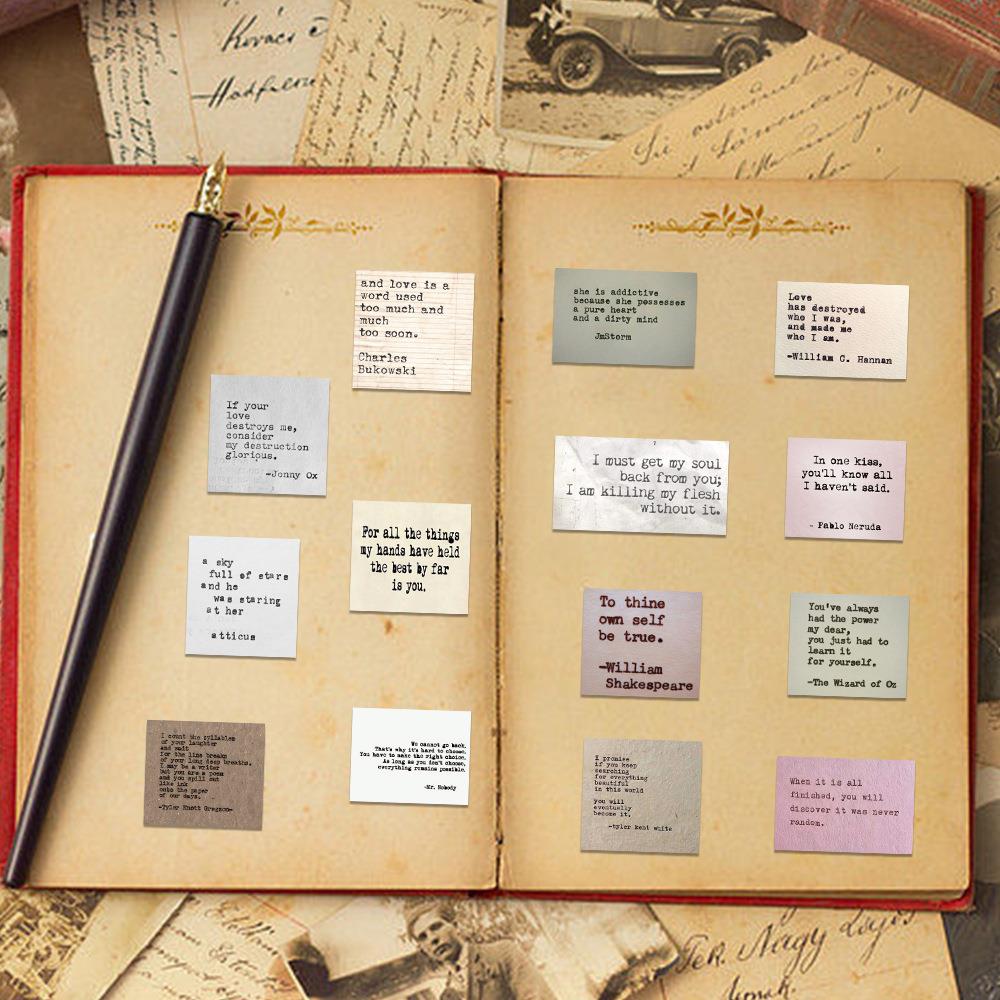 Kovács
and love is a
word used
too much and
much
too soon.
Charles
Bukowski
If your
love
destroys me,
consider
my destruction
glorious.
-Jonny Ox
For all the things
my hands have held
the best by far
is you.
a sky
full of stars
and he
was staring
at her
atticus
I count the syllables
of your laughter
and wait
for the line breaks
of your long deep breaths.
I may be a writer
but you are a poem
and you spill out
like ink
onto the paper
of our days.
-Tyler Knott Gregson-
We cannot go back.
That's why it's hard to choose.
You have to make the right choice.
As long as you don't choose,
everything remains possible.
-Mr. Nobody
she is addictive
because she possesses
a pure heart
and a dirty mind
JmStorm
Love
has destroyed
who I was,
and made me
who I am.
-William C. Hannan
I must get my soul
back from you;
I am killing my flesh
without it.
In one kiss,
you'll know all
I haven't said.
- Pablo Neruda
To thine
own self
be true.
-William
Shakespeare
You've always
had the power
my dear,
you just had to
learn it
for yourself.
-The Wizard of Oz
I promise
if you keep
searching
for everything
beautiful
in this world
you will
eventually
become it.
-tyler kent white
When it is all
finished, you will
discover it was never
random.
Nagy Lajos